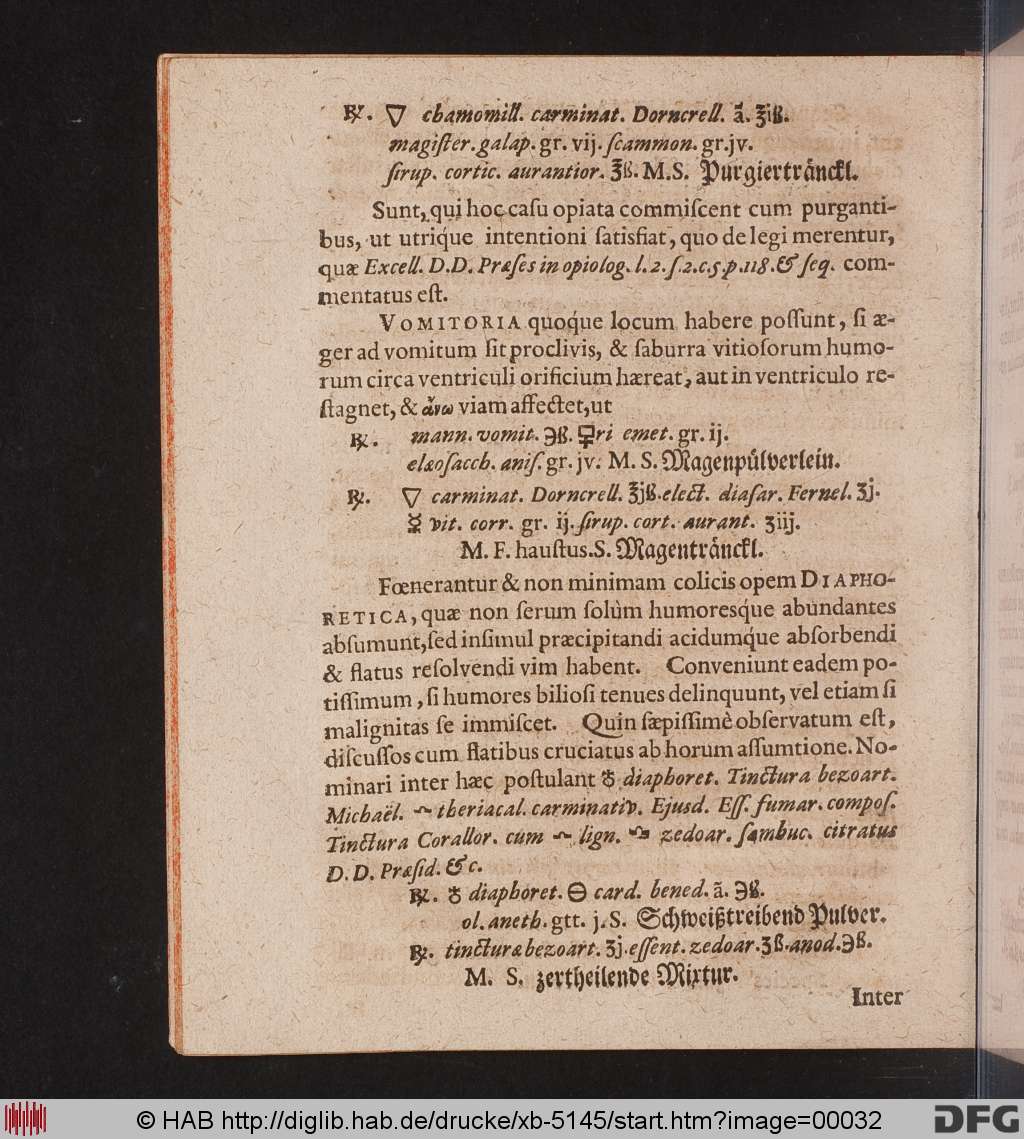 ℞. 🜄 chamomill. carminat. Dorncrell. ã. ʒiß.
magiſter. galap. gr. vij. ſcammon. gr. jv.
ſirup. cortic. aurantior. ℥ß. M. S. Purgiertränckl.
Sunt, qui hoc caſu opiata commiſcent cum purganti-
bus, ut utriq́ue intentioni ſatisfiat, quo de legi merentur,
quæ Excell. D. D. Præſes in opiolog. l. 2. ſ. 2. c. 5. p. 118. & ſeq. com-
mentatus eſt.
VOMITORIA quoq́ue locum habere poſſunt, ſi æ-
ger ad vomitum ſit proclivis, & ſaburra vitioſorum humo-
rum circa ventriculi orificium hæreat, aut in ventriculo re-
ſtagnet, & ἄνω viam affectet, ut
℞. mann. vomit. ℈ß. 🜿ri emet. gr. ij.
elæoſacch. aniſ. gr. jv. M. S. Magenpülverlein.
℞. 🜄 carminat. Dorncrell. ℥jß. elect. diaſar. Fernel. ʒj.
☿ vit. corr. gr. ij. ſirup. cort. aurant. ʒiij.
M. F. hauſtus. S. Magentränckl.
Fœnerantur & non minimam colicis opem DIAPHO-
RETICA, quæ non ſerum ſolùm humoresq́ue abundantes
abſumunt, ſed inſimul præcipitandi acidumq́ue abſorbendi
& flatus reſolvendi vim habent. Conveniunt eadem po-
tiſſimum, ſi humores bilioſi tenues delinquunt, vel etiam ſi
malignitas ſe immiſcet. Quin ſæpiſſimè obſervatum eſt,
diſcuſſos cum flatibus cruciatus ab horum aſſumtione. No-
minari inter hæc poſtulant ♁ diaphoret. Tinctura bezoart.
Michaël. theriacal. carminativ. Ejusd. Eſſ. fumar. compoſ.
Tinctura Corallor. cum lign. zedoar. ſambuc. citratus
D. D. Præſid. & c.
℞. ♁ diaphoret. 🜔 card. bened. ã. ℈ß.
ol. aneth. gtt. j. S. Schweißtreibend Pulver.
℞. tincturæ bezoart. ʒj. eſſent. zedoar. ʒß. anod. ℈ß.
M. S. zertheilende Mixtur.
Inter
© HAB http://diglib.hab.de/drucke/xb-5145/start.htm?image=00032
DFG